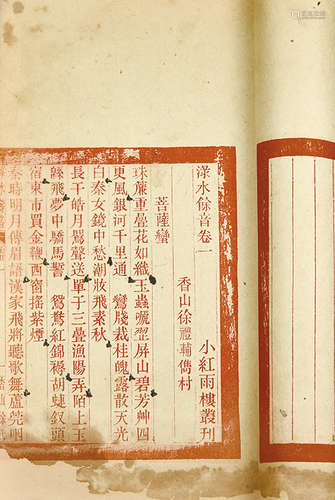 淥水餘音卷一
小紅雨樓叢刊
香山徐禮輔儁村
菩薩蠻
珠簾重疊花如織玉蟲嚦歰屏山碧芳艸四
更風銀河千里通 鸞牋裁桂魄露散天光
白秦女鏡中愁潮妝飛素秋
長干皓月鴛聲送單于三疊漁陽弄陌上玉
驄飛夢中驕馬驚 鴛鴦紅錦褥胡蜨釵頭
宿東市買金鞭西窗搖紫煙
秦時明月傳眉語漢家飛將聽歌舞蘆莞咽